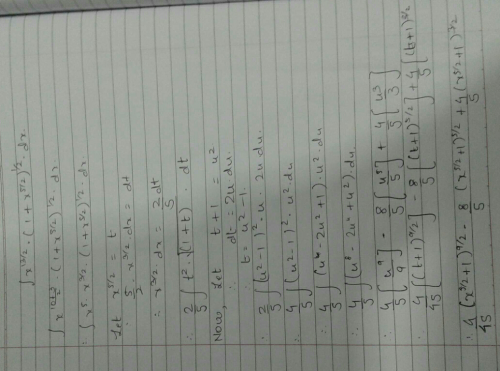 ∫ x^13/2 · (1 + x^5/2)^1/2 · dx.
∫ x^(10+3)/2 · (1 + x^5/2)^1/2 · dx.
∴ ∫ x^5 · x^3/2 · (1 + x^5/2)^1/2 · dx.
Let x^5/2 = t
∴ 5/2 x^3/2 dx = dt
∴ x^3/2 dx = 2/5 dt
∴ 2/5 ∫ t^2 · √(1 + t) · dt
Now, Let t + 1 = u^2
∴ dt = 2u du.
∴ t = u^2 - 1.
∴ 2/5 ∫ (u^2 - 1)^2 · u · 2u du.
∴ 4/5 ∫ (u^2 - 1)^2 · u^2 · du
∴ 4/5 ∫ (u^4 - 2u^2 + 1) · u^2 · du
∴ 4/5 ∫ (u^6 - 2u^4 + u^2) · du
∴ 4/5 [u^9/9] - 8/5 [u^5/5] + 4/5 [u^3/3]
∴ 4/45 [(t+1)^9/2] - 8/5 [(t+1)^5/2] + 4/5 [(t+1)^3/2]
∴ 4/45 (x^5/2 + 1)^9/2 - 8/5 (x^5/2 + 1)^5/2 + 4/5 (x^5/2 + 1)^3/2